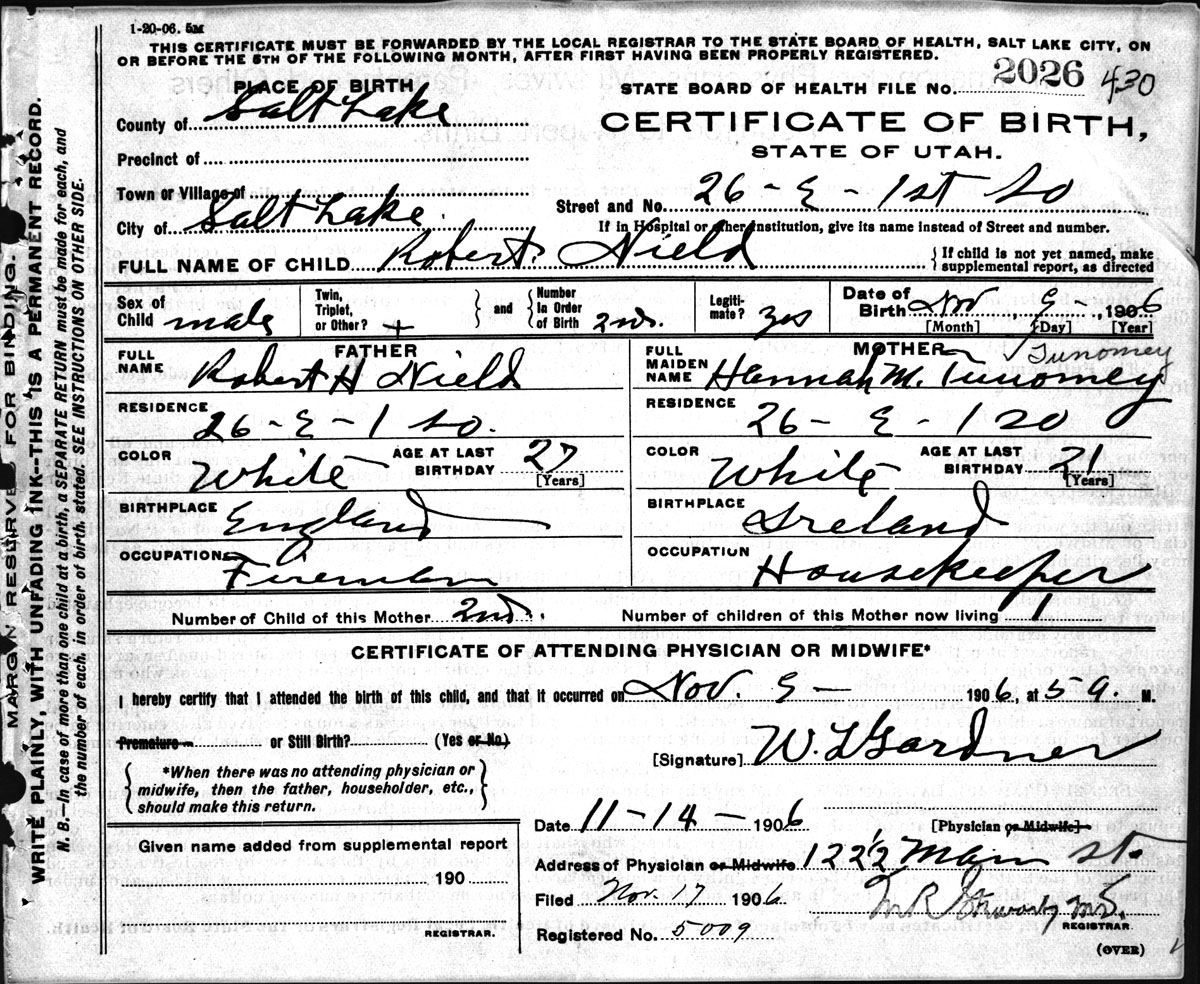 1-20-06. 5M
THIS CERTIFICATE MUST BE FORWARDED BY THE LOCAL REGISTRAR TO THE STATE BOARD OF HEALTH, SALT LAKE CITY, ON
OR BEFORE THE 5TH OF THE FOLLOWING MONTH, AFTER FIRST HAVING BEEN PROPERLY REGISTERED.
MARGIN RESERVED FOR BINDING.
WRITE PLAINLY, WITH UNFADING INK--THIS IS A PERMANENT RECORD.
N. B.—In case of more than one child at a birth, a SEPARATE RETURN must be made for each, and
the number of each, in order of birth, stated. SEE INSTRUCTIONS ON OTHER SIDE.
PLACE OF BIRTH
STATE BOARD OF HEALTH FILE No. 2026 430
County of Salt Lake
CERTIFICATE OF BIRTH,
STATE OF UTAH.
Precinct of
Town or Village of
Street and No. 26 - E - 1st So
City of Salt Lake
If in Hospital or other Institution, give its name instead of Street and number.
FULL NAME OF CHILD Robert Nield
If child is not yet named, make
supplemental report, as directed
Sex of Child male
Twin, Triplet, or Other? +
and Number In Order of Birth 2nd.
Legitimate? yes
Date of Birth Nov 9 -, 1906
[Month] [Day] [Year]
FATHER
FULL NAME Robert H Nield
RESIDENCE 26 - E - 1 So.
COLOR White AGE AT LAST BIRTHDAY 27 [Years]
BIRTHPLACE England
OCCUPATION Fireman
MOTHER Tunomey
FULL MAIDEN NAME Hannah M. Tunomey
RESIDENCE 26 - E - 1 So
COLOR White AGE AT LAST BIRTHDAY 21 [Years]
BIRTHPLACE Ireland
OCCUPATION Housekeeper
Number of Child of this Mother 2nd. Number of children of this Mother now living 1
CERTIFICATE OF ATTENDING PHYSICIAN OR MIDWIFE*
I hereby certify that I attended the birth of this child, and that it occurred on Nov. 9 - 1906, at 5 a. M.
Premature or Still Birth? (Yes or No)
[Signature] W. L Gardner
*When there was no attending physician or
midwife, then the father, householder, etc.,
should make this return.
Date 11-14- 1906 [Physician or Midwife]
Given name added from supplemental report
190
REGISTRAR.
Address of Physician or Midwife 122 1/2 Main St.
Filed Nov. 17 1906 M R MD.
REGISTRAR.
Registered No. 5009
(OVER)